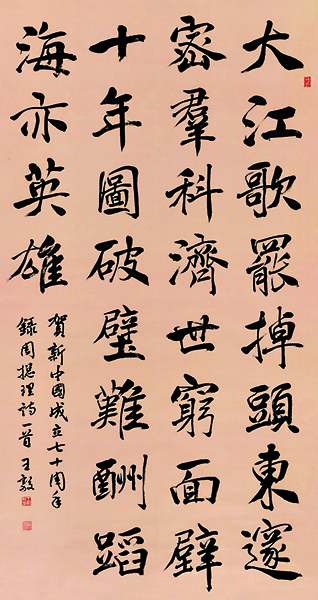 大江歌罷掉頭東邃
密羣科濟世窮面壁
十年圖破壁難酬蹈
海亦英雄
賀新中國成立七十周年
錄周總理詩一首 王敦